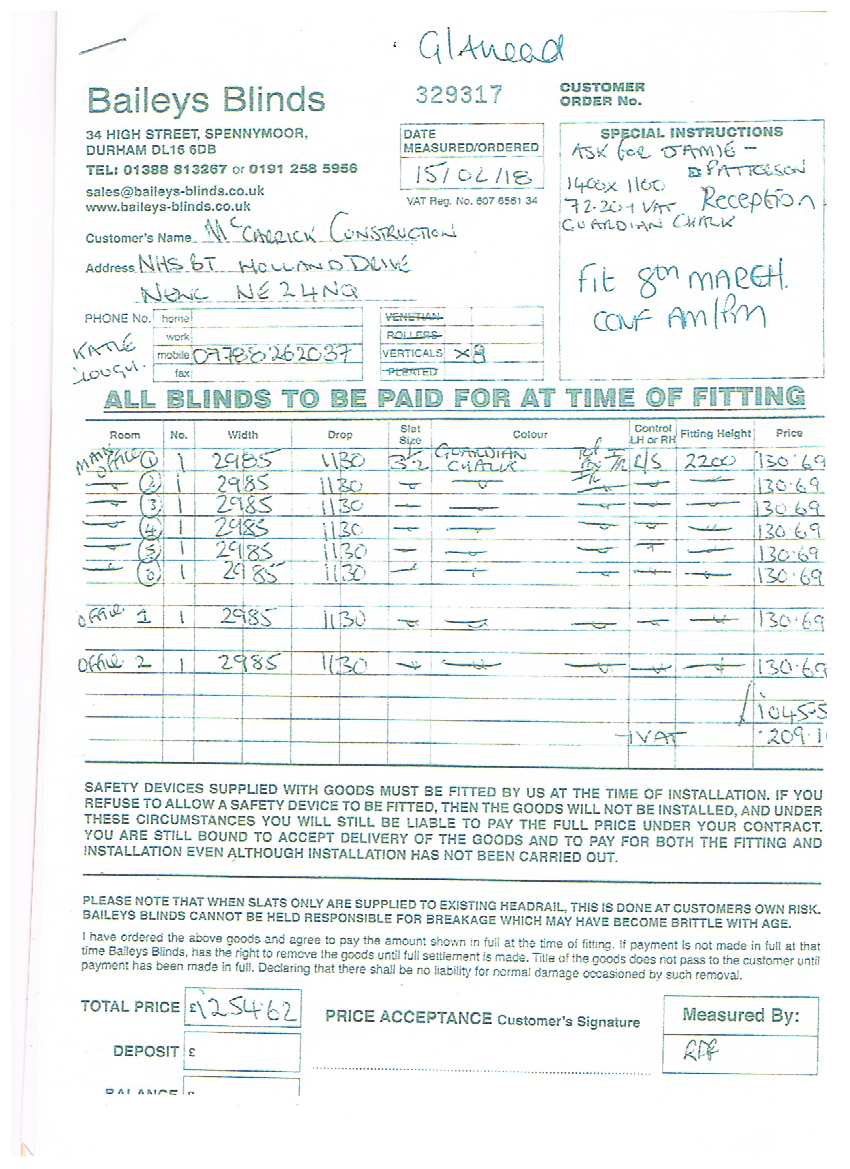 G/Ahead
Baileys Blinds
34 HIGH STREET, SPENNYMOOR,
DURHAM DL16 6DB
TEL: 01388 813267 or 0191 258 5956
sales@baileys-blinds.co.uk
www.baileys-blinds.co.uk
329317
CUSTOMER
ORDER No.
DATE
MEASURED/ORDERED
15/02/18
VAT Reg. No. 607 6561 34
SPECIAL INSTRUCTIONS
ASK FOR JAMIE -
PATTERSON
1400 x 1100 Reception
72.20 + VAT
GUARDIAN CHALK
Fit 8th MARCH.
CONF AM/PM
Customer's Name McCARRICK CONSTRUCTION
Address NHSBT HOLLAND DRIVE
NEWC NE2 4NQ
PHONE No. home
work
mobile 07788262037
fax
KATIE
VENETIAN
ROLLERS
VERTICALS x9
PLEATED
ALL BLINDS TO BE PAID FOR AT TIME OF FITTING
Room No. Width Drop Slat Size Colour Control LH or RH Fitting Height Price
MAIN OFFICE 1 1 2985 1130 3½ GUARDIAN CHALK 2200 130.69
2 1 2985 1130 130.69
3 1 2985 1130 130.69
4 1 2985 1130 130.69
5 1 2985 1130 130.69
6 1 2985 1130 130.69
OFFICE 1 1 2985 1130 130.69
OFFICE 2 1 2985 1130 130.69
1045.5
+VAT 209.1
SAFETY DEVICES SUPPLIED WITH GOODS MUST BE FITTED BY US AT THE TIME OF INSTALLATION. IF YOU
REFUSE TO ALLOW A SAFETY DEVICE TO BE FITTED, THEN THE GOODS WILL NOT BE INSTALLED, AND UNDER
THESE CIRCUMSTANCES YOU WILL STILL BE LIABLE TO PAY THE FULL PRICE UNDER YOUR CONTRACT.
YOU ARE STILL BOUND TO ACCEPT DELIVERY OF THE GOODS AND TO PAY FOR BOTH THE FITTING AND
INSTALLATION EVEN ALTHOUGH INSTALLATION HAS NOT BEEN CARRIED OUT.
PLEASE NOTE THAT WHEN SLATS ONLY ARE SUPPLIED TO EXISTING HEADRAIL, THIS IS DONE AT CUSTOMERS OWN RISK.
BAILEYS BLINDS CANNOT BE HELD RESPONSIBLE FOR BREAKAGE WHICH MAY HAVE BECOME BRITTLE WITH AGE.
I have ordered the above goods and agree to pay the amount shown in full at the time of fitting. If payment is not made in full at that
time Baileys Blinds, has the right to remove the goods until full settlement is made. Title of the goods does not pass to the customer until
payment has been made in full. Declaring that there shall be no liability for normal damage occasioned by such removal.
TOTAL PRICE £1254.62
PRICE ACCEPTANCE Customer's Signature
Measured By:
DEPOSIT £
BALANCE £